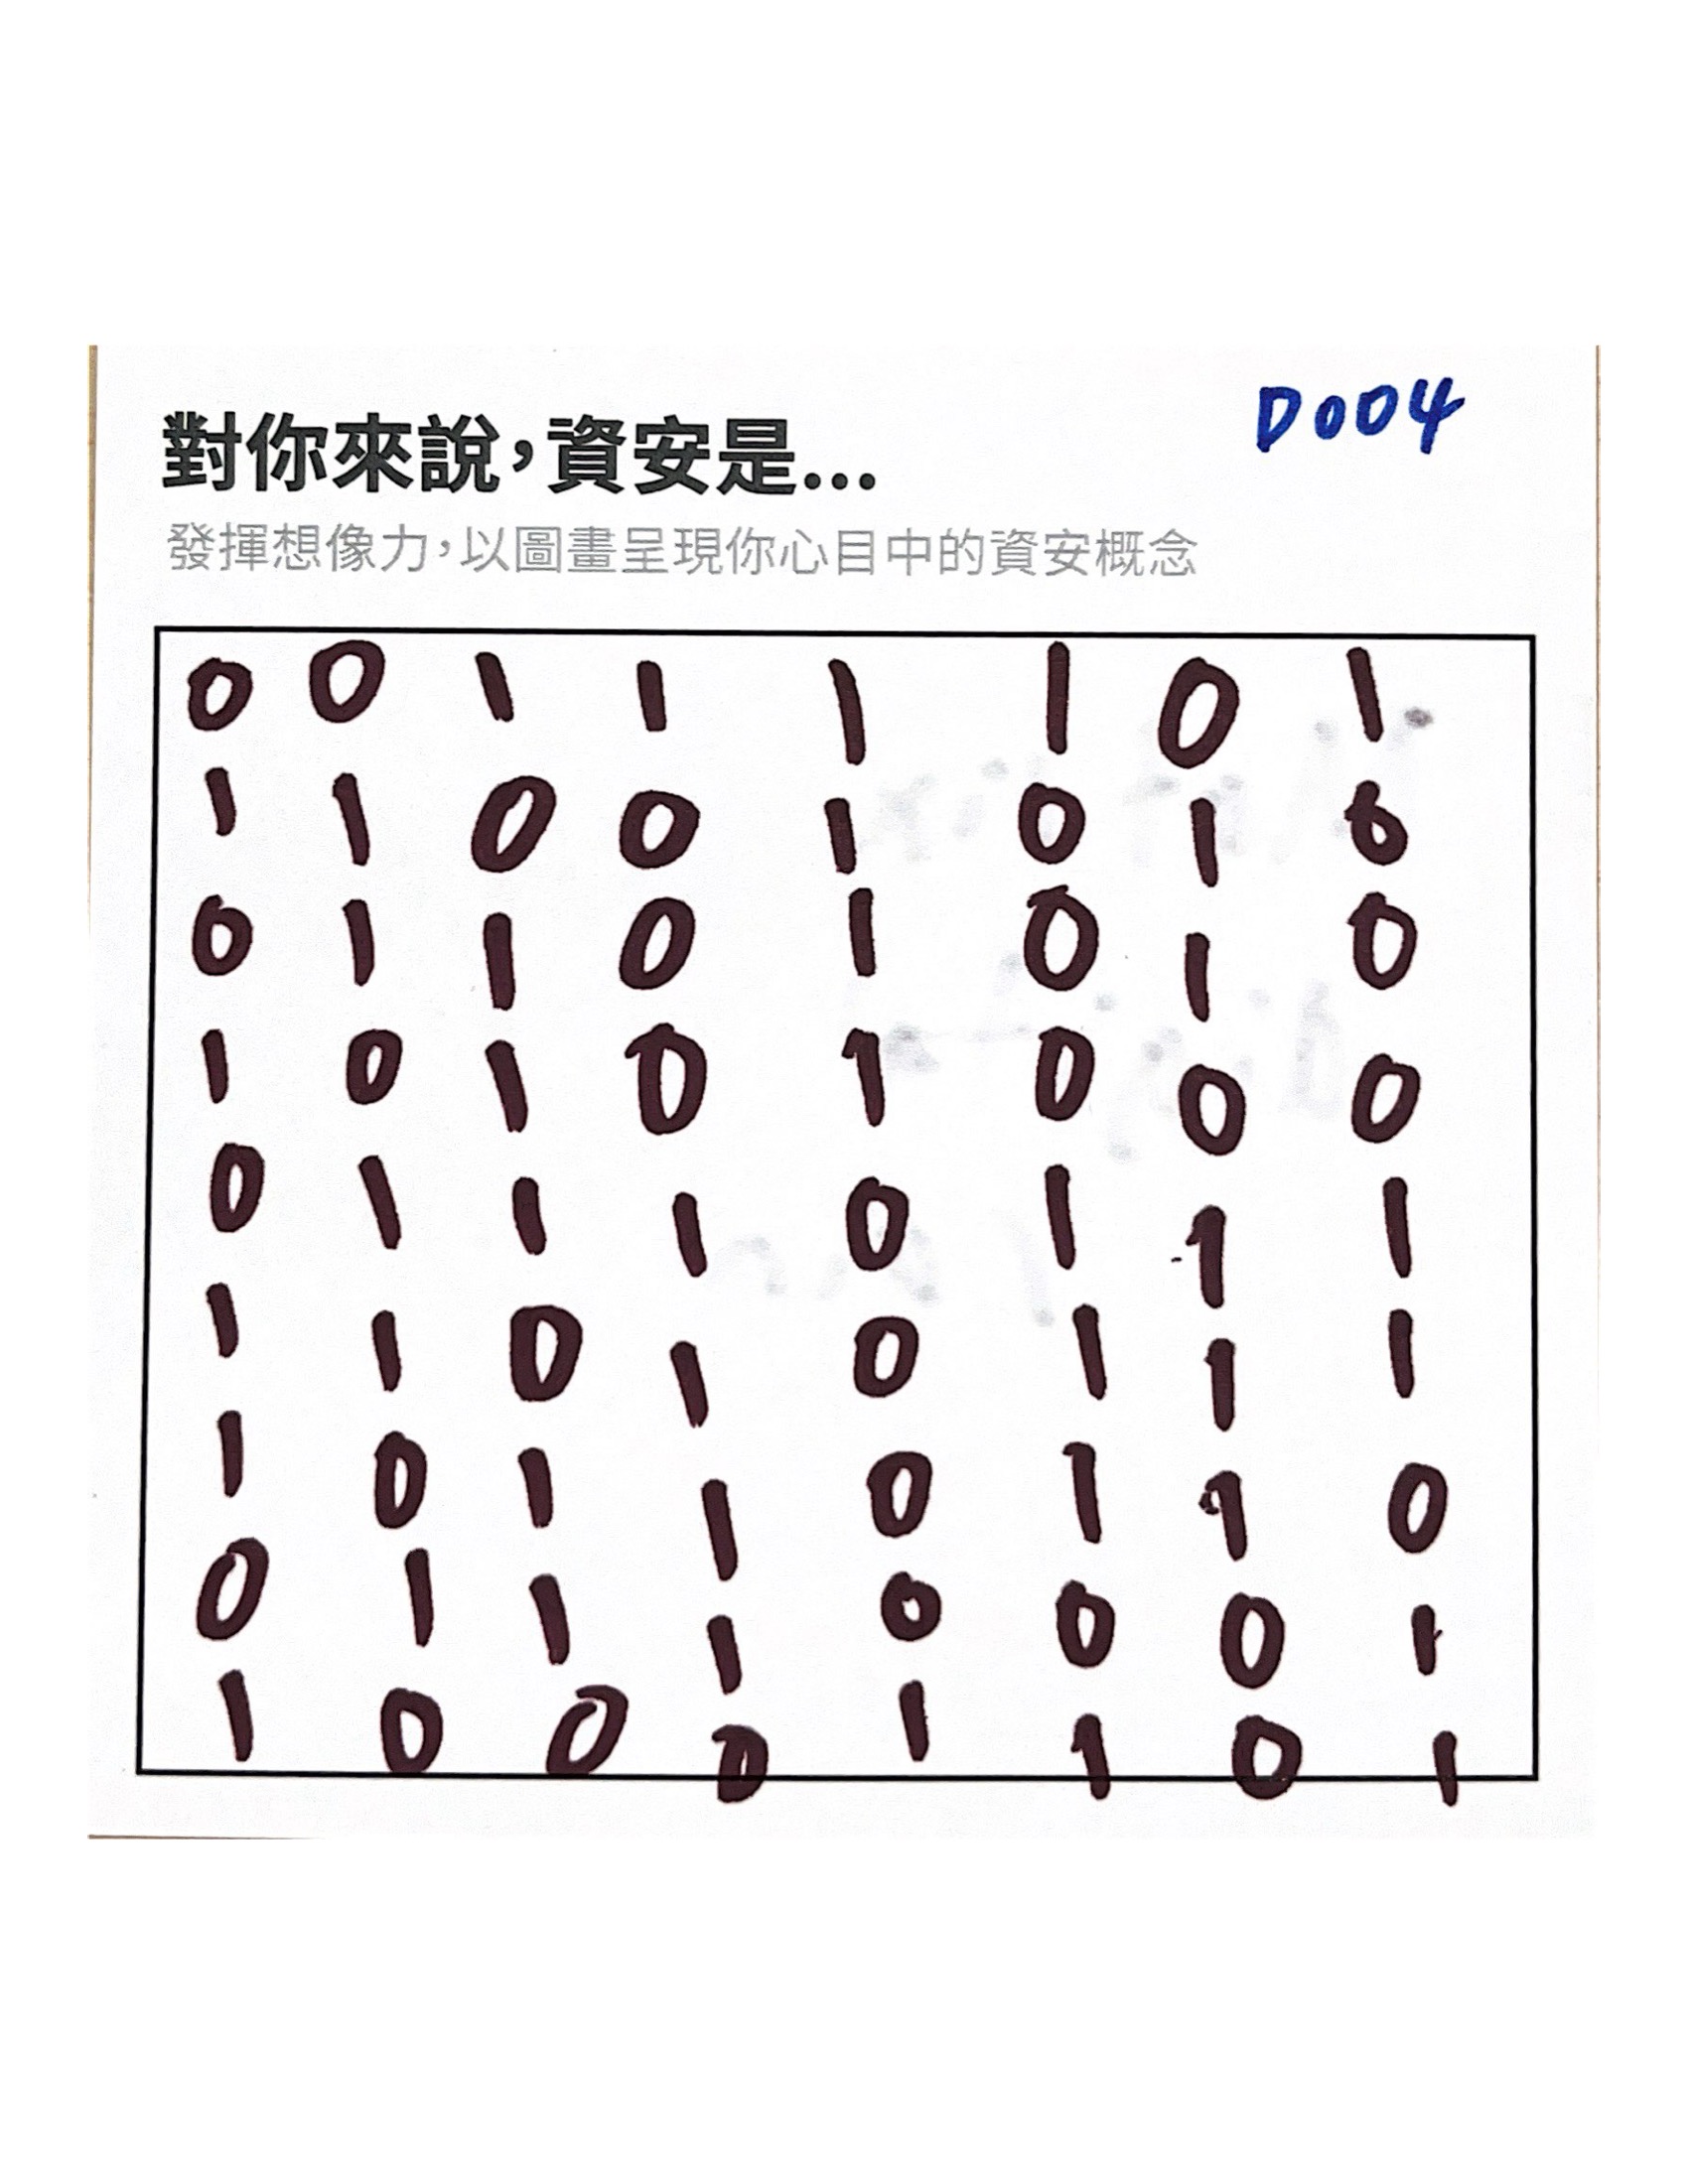 D004
對你來說，資安是...
發揮想像力，以圖畫呈現你心目中的資安概念
0 0 1 1 1 1 0 1
1 1 0 0 1 0 1 0
0 1 1 0 1 0 1 0
1 0 1 0 1 0 0 0
0 1 1 1 0 1 1 1
1 1 0 1 0 1 1 1
1 0 1 1 0 1 1 0
0 1 1 1 0 0 0 1
1 0 0 0 1 1 0 1